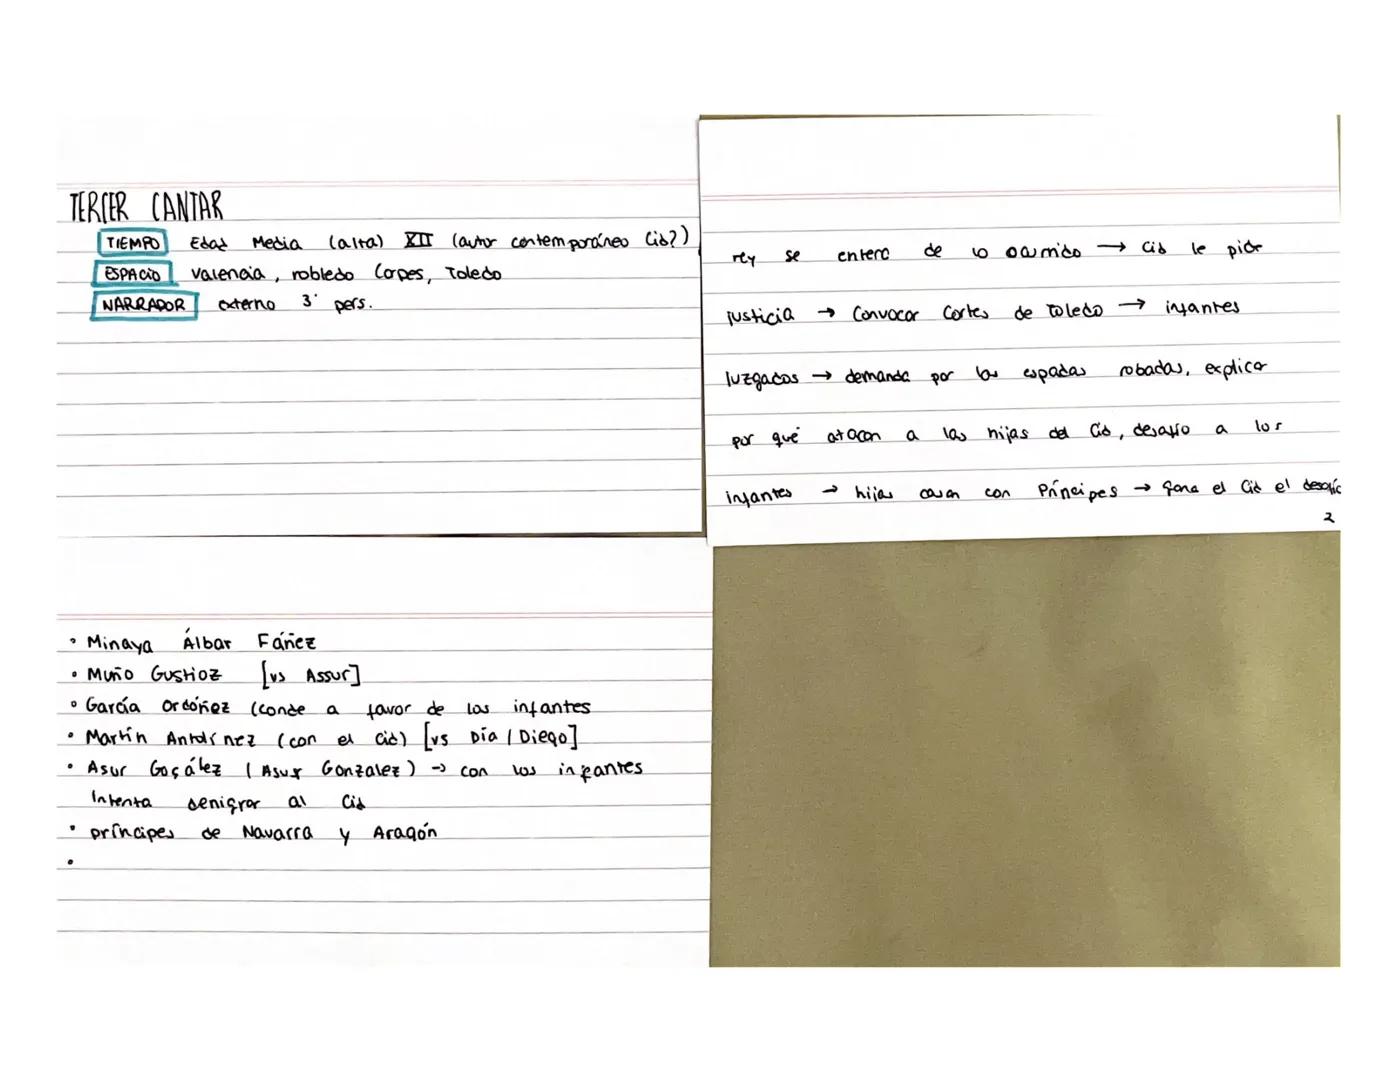 TERCER CANTAR
TIEMPO Edad Media (alta) XII (autor contemporáneo Cid?)
ESPACIO Valencia, robledo Corpes, Toledo
NARRADOR externo 3ª pers.
rey se entera de lo ocurrido → Cid le pide
justicia → Convocar Cortes de Toledo → infantes
juzgados → demanda por las espadas robadas, explicar
por qué atacan a las hijas del Cid, desafío a los
infantes → hijas casan con Príncipes → gana el Cid el desafío
2
• Minaya Álbar Fáñez
• Muño Gustioz [vs Assur]
• García Ordóñez (conde a favor de los infantes
• Martín Antolínez (con el Cid) [vs Día / Diego]
• Asur Goçález (Asur Gonzalez) → con los infantes
Intenta denigrar al Cid
• príncipes de Navarra y Aragón
•